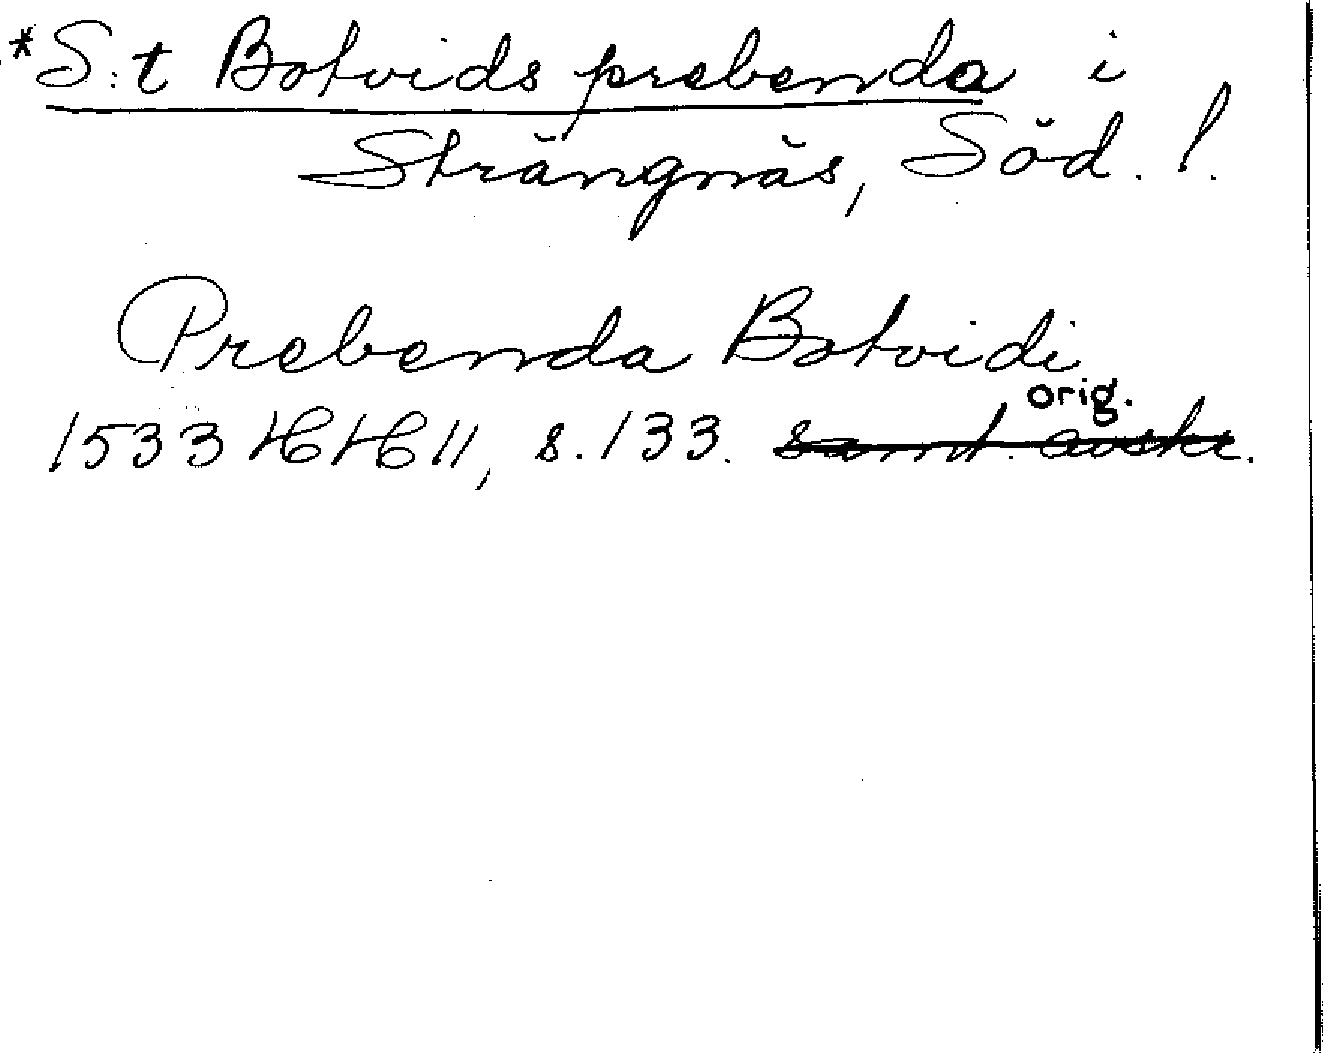 *S:t Botvids prebenda i
Strängnäs, Söd. l.
Prebenda Botvidi
orig.
1533 HH 11, s. 133. samt. avskr.